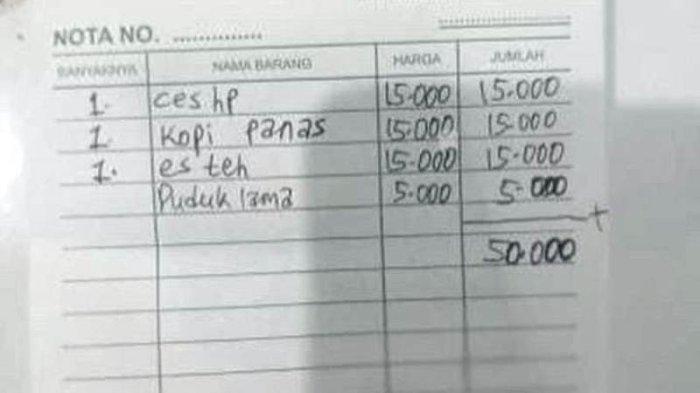 NOTA NO. ..............
BANYAKNYA NAMA BARANG HARGA JUMLAH
1. ces hp 15.000 15.000
1 Kopi panas 15.000 15.000
1. es teh 15.000 15.000
Puduk lama 5.000 5.000
+
50.000